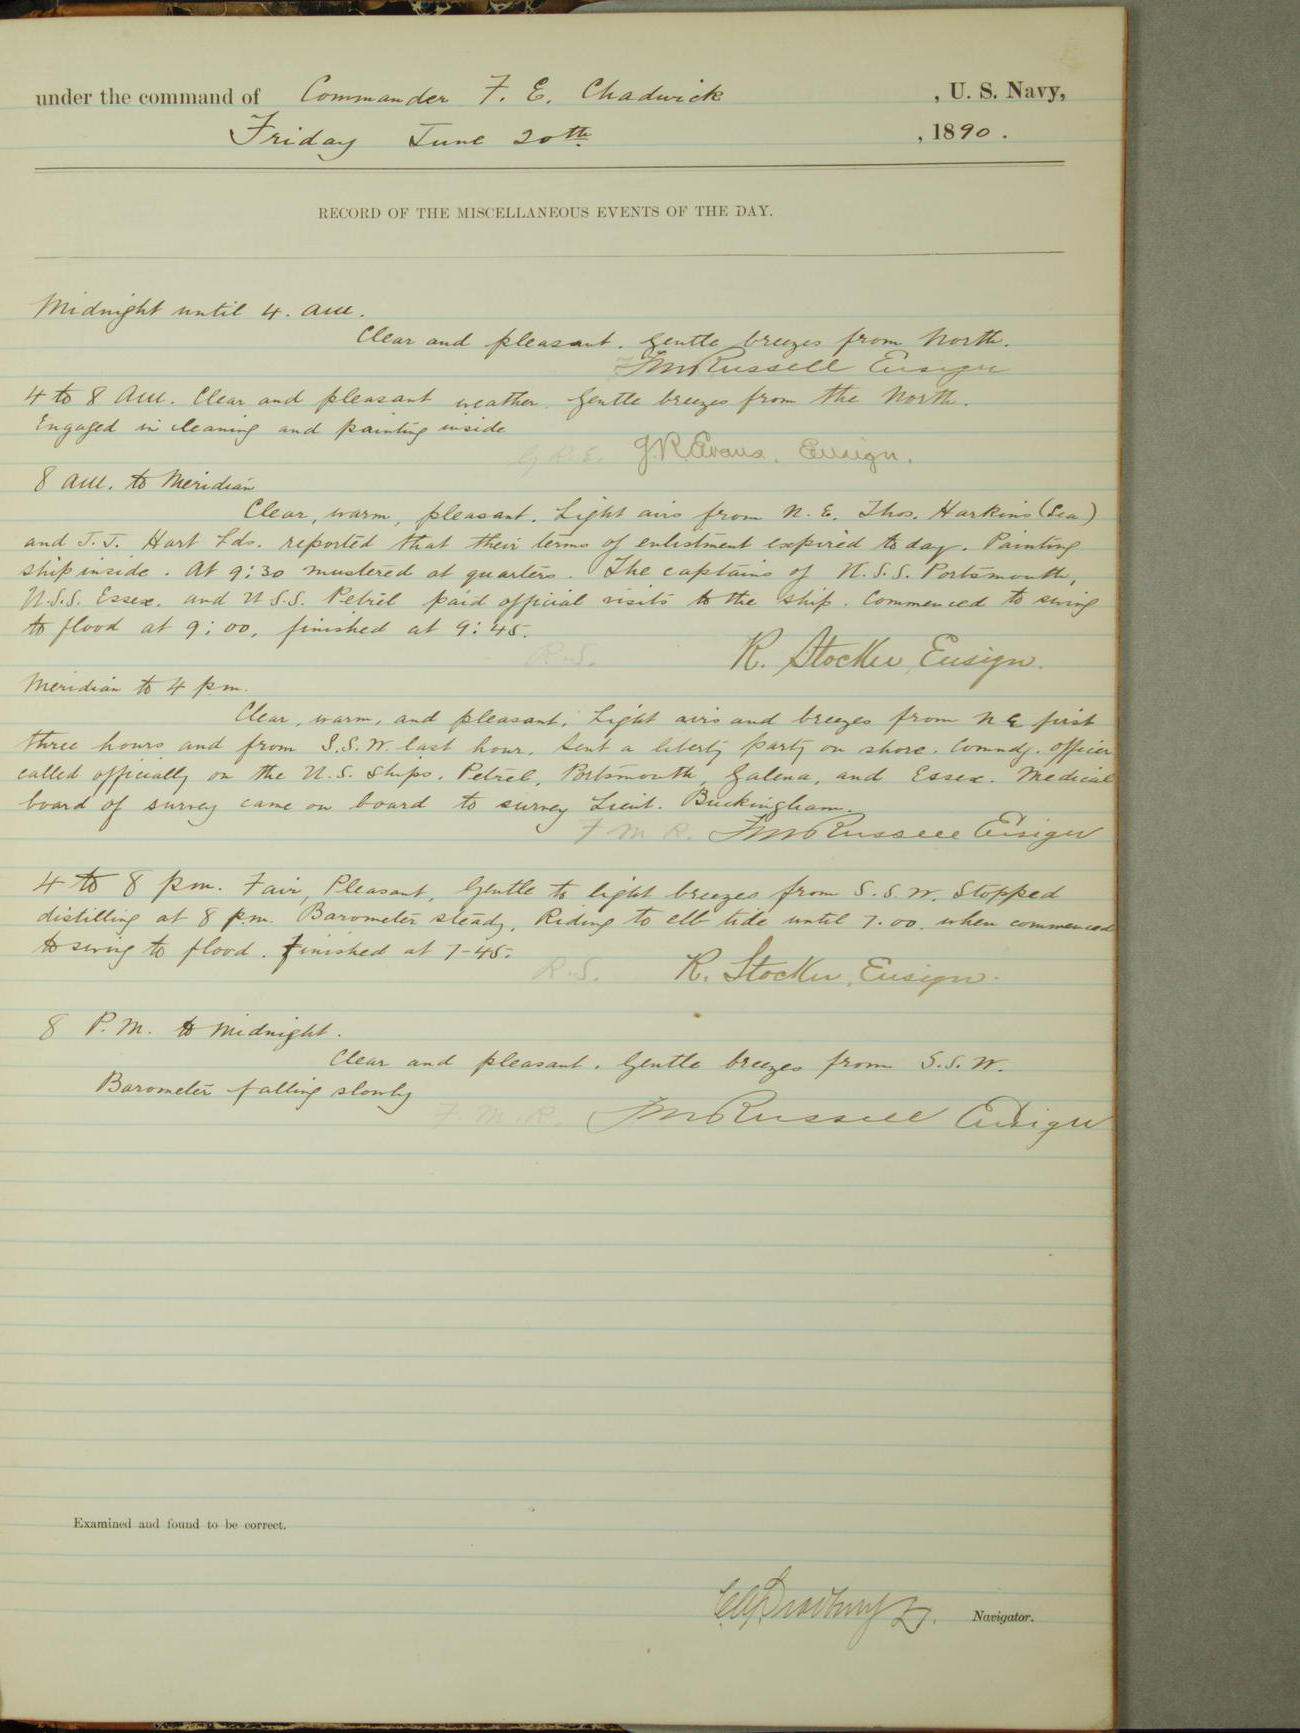 under the command of Commander F. E. Chadwick , U. S. Navy,
Friday June 20th , 1890.
RECORD OF THE MISCELLANEOUS EVENTS OF THE DAY.
Midnight until 4. am.
Clear and pleasant. Gentle breezes from North.
F M Russell Ensign
4 to 8 am. Clear and pleasant weather. Gentle breezes from the North.
Engaged in cleaning and painting inside
G. R. E. G.R. Evans. Ensign.
8 am. to Meridian
Clear, warm, pleasant. Light airs from N. E. Thos. Harkins (Sea)
and J. J. Hart Lds. reported that their terms of enlistment expired to day. Painting
ship inside. At 9:30 mustered at quarters. The captains of U.S.S. Portsmouth,
U.S.S. Essex. and U S.S. Petrel paid official visits to the ship. Commenced to swing
to flood at 9:00, finished at 9:45.
R. S. R. Stocker, Ensign.
Meridian to 4 p.m.
Clear, warm, and pleasant. Light airs and breezes from N E first
three hours and from S.S.W. last hour. Sent a liberty party on shore. Commdg. officer
called officially on the U.S. Ships. Petrel, Portsmouth, Galena, and Essex. Medical
board of survey came on board to survey Lieut. Buckingham.
F M R. F M Russell Ensign
4 to 8 p.m. Fair, Pleasant, Gentle to light breezes from S. S. W. Stopped
distilling at 8 p.m. Barometer steady. Riding to ebb tide until 7.00. when commenced
to swing to flood. Finished at 7-45.
R. S. R. Stocker, Ensign.
8 P. M. to Midnight.
Clear and pleasant. Gentle breezes from S.S. W.
Barometer falling slowly
F. M. R. F M Russell Ensign
Examined and found to be correct.
Navigator.